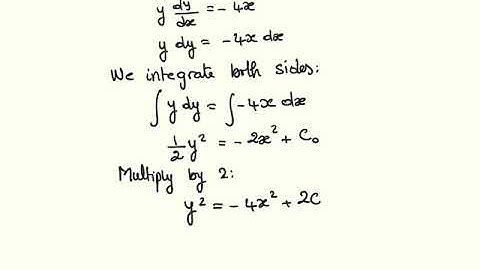 y dy/dx = - 4x
y dy = - 4x dx
We integrate both sides:
∫ y dy = ∫ -4x dx
1/2 y² = - 2x² + C₀
Multiply by 2:
y² = - 4x² + 2C